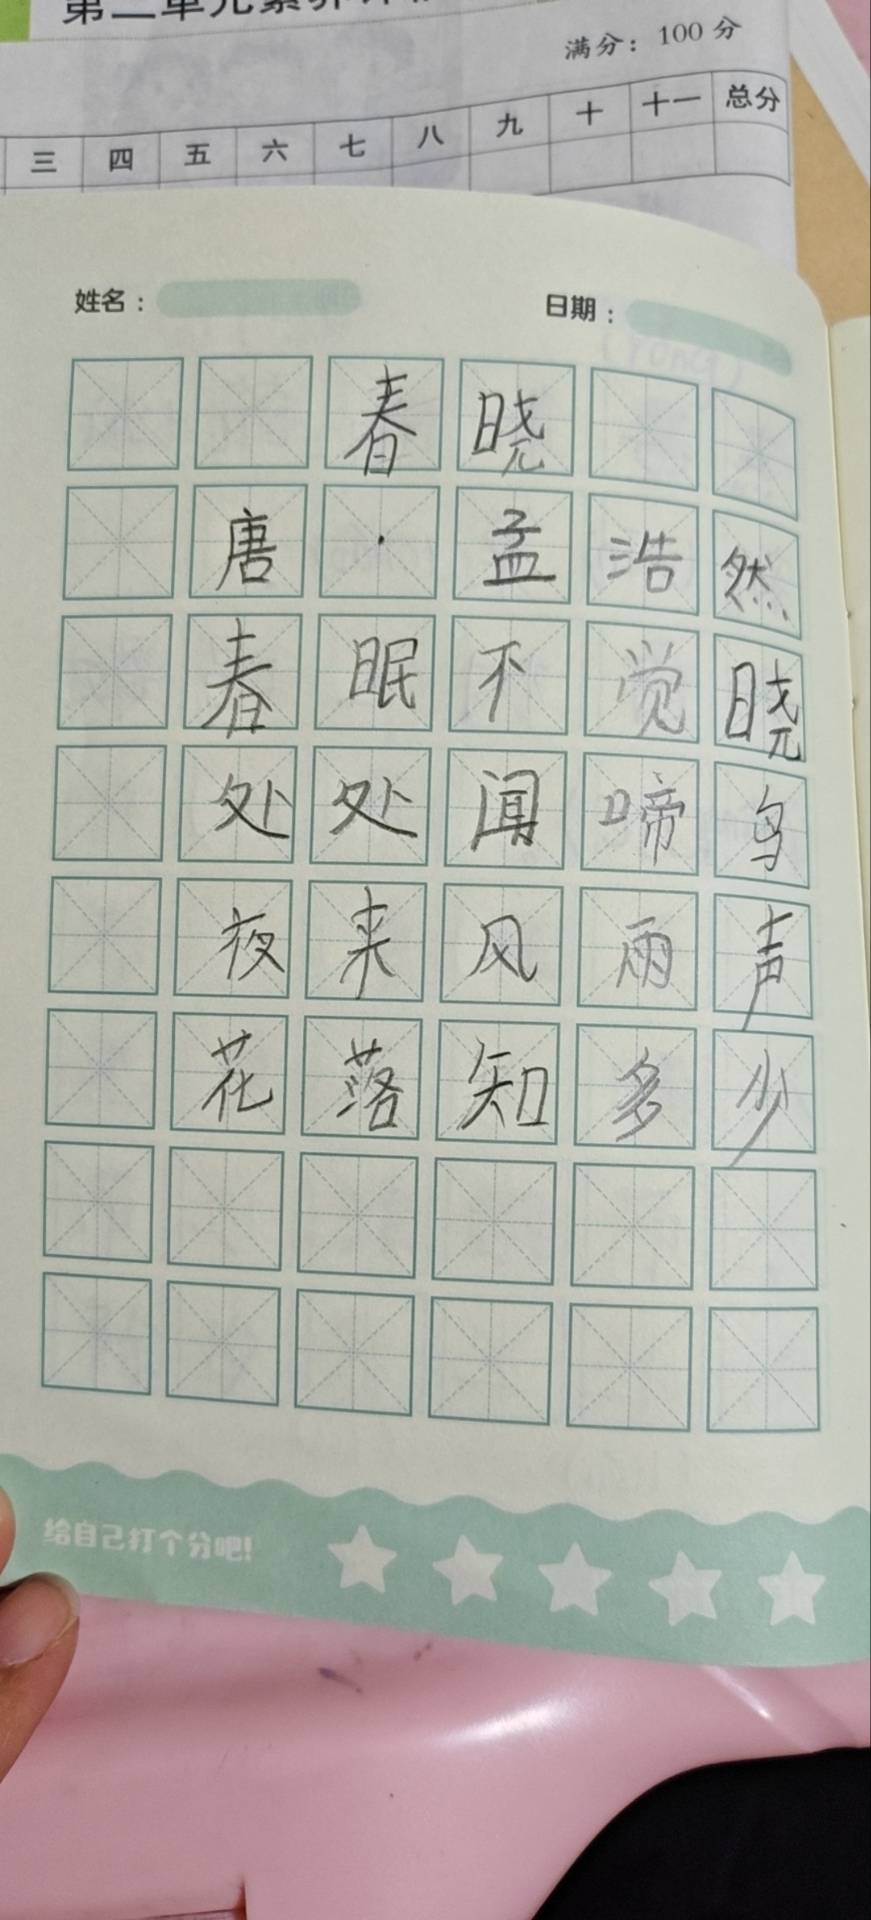 满分：100 分
三 四 五 六 七 八 九 十 十一 总分
姓名： 日期：
春晓
唐·孟浩然
春眠不觉晓
处处闻啼鸟
夜来风雨声
花落知多少
给自己打个分吧!